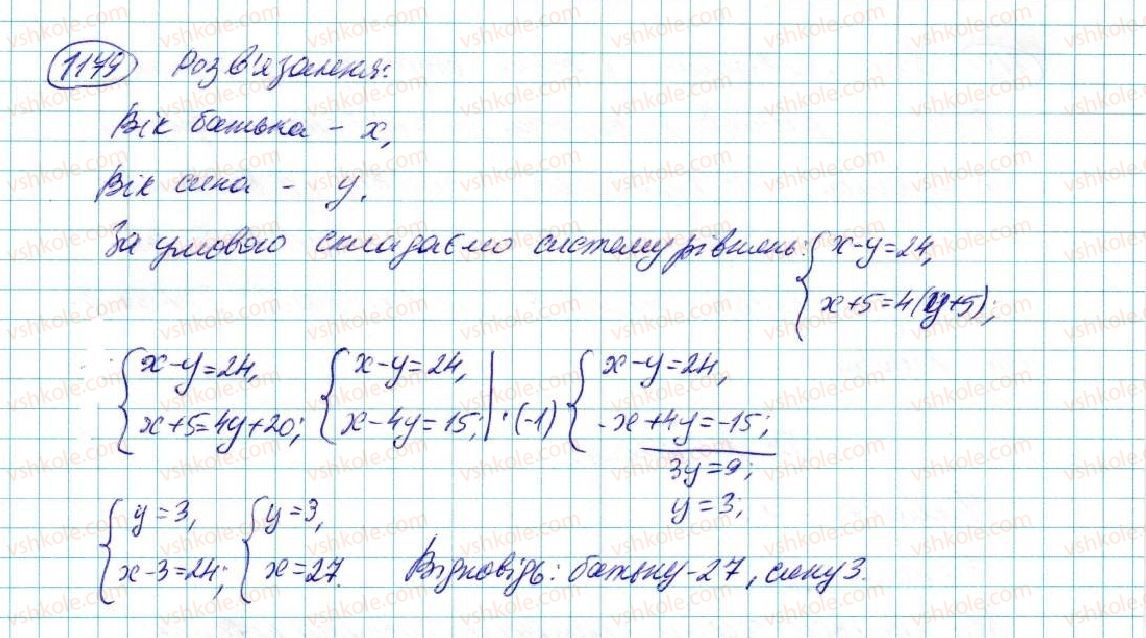 1179 Розв'язання:
Вік батька - x,
Вік сина - y.
За умовою складаємо систему рівнянь: { x-y=24, x+5=4(y+5);
{ x-y=24, x+5=4y+20; { x-y=24, x-4y=15; | ·(-1) { x-y=24, -x+4y=-15;
3y=9;
y=3;
{ y=3, x-3=24; { y=3, x=27. Відповідь: батьку-27, сину 3.
vshkole.com